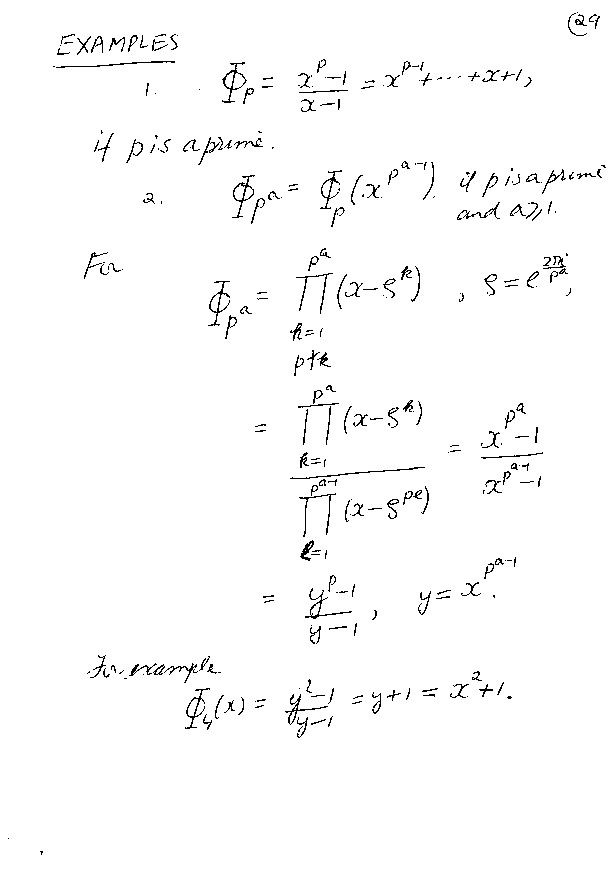 29
EXAMPLES
1. Φ_p = (x^p - 1)/(x - 1) = x^{p-1} + ··· + x + 1,
if p is a prime.
2. Φ_{p^a} = Φ_p(x^{p^{a-1}}) if p is a prime
and a ≥ 1.
For
Φ_{p^a} = ∏_{k=1, p∤k}^{p^a} (x - ζ^k), ζ = e^{2πi/p^a},
= ∏_{k=1}^{p^a} (x - ζ^k) / ∏_{ℓ=1}^{p^{a-1}} (x - ζ^{pℓ}) = (x^{p^a} - 1)/(x^{p^{a-1}} - 1)
= (y^p - 1)/(y - 1), y = x^{p^{a-1}}.
For example
Φ_4(x) = (y^2 - 1)/(y - 1) = y + 1 = x^2 + 1.